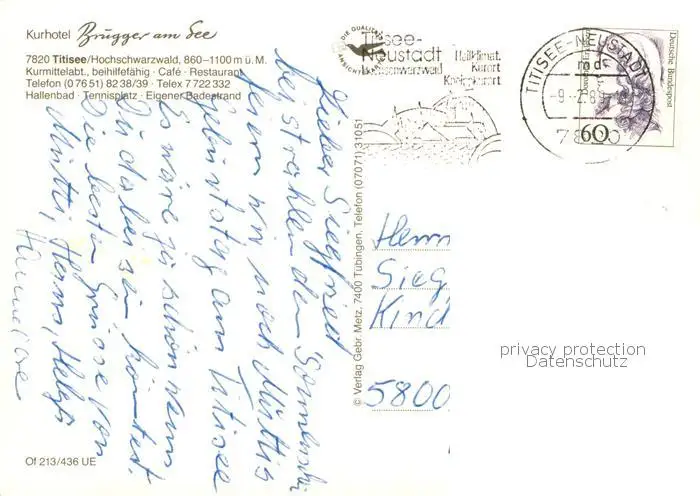 Kurhotel Brugger am See
7820 Titisee/Hochschwarzwald, 860–1100 m ü. M.
Kurmittelabt., beihilfefähig · Café · Restaurant
Telefon (0 76 51) 82 38/39 · Telex 7 722 332
Hallenbad · Tennisplatz · Eigener Badestrand
Lieber Siegfried
bei strahlendem Sonnenschein
feiern wir noch Muttis
Geburtstag am Titisee
Es wäre zu schön wenn
Du dabei sein könntest.
Die besten Grüsse von
Mutti, Hanns,
Hannelore
Of 213/436 UE
© Verlag Gebr. Metz, 7400 Tübingen, Telefon (07071) 31051
DIE QUALITÄTS
ANSICHTSKARTE
Titisee-
Neustadt
Hochschwarzwald
Heilklimat.
Kurort
Kneippkurort
TITISEE-NEUSTADT
md
7820
60
Deutsche Bundespost
Herrn
Sieg
Kind
5800
privacy protection
Datenschutz